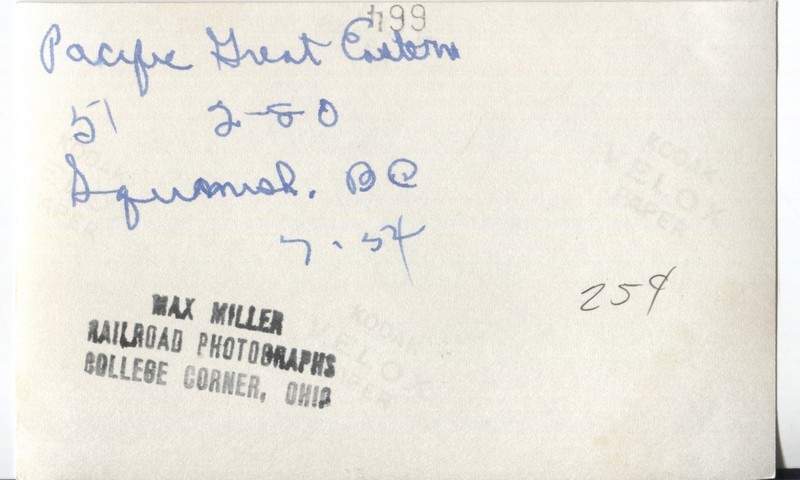 664
Pacific Great Eastern
51 2-8-0
Squamish, BC
7-54
KODAK
VELOX
PAPER
25¢
KODAK
VELOX
PAPER
KODAK
VELOX
PAPER
MAX MILLER
RAILROAD PHOTOGRAPHS
COLLEGE CORNER, OHIO